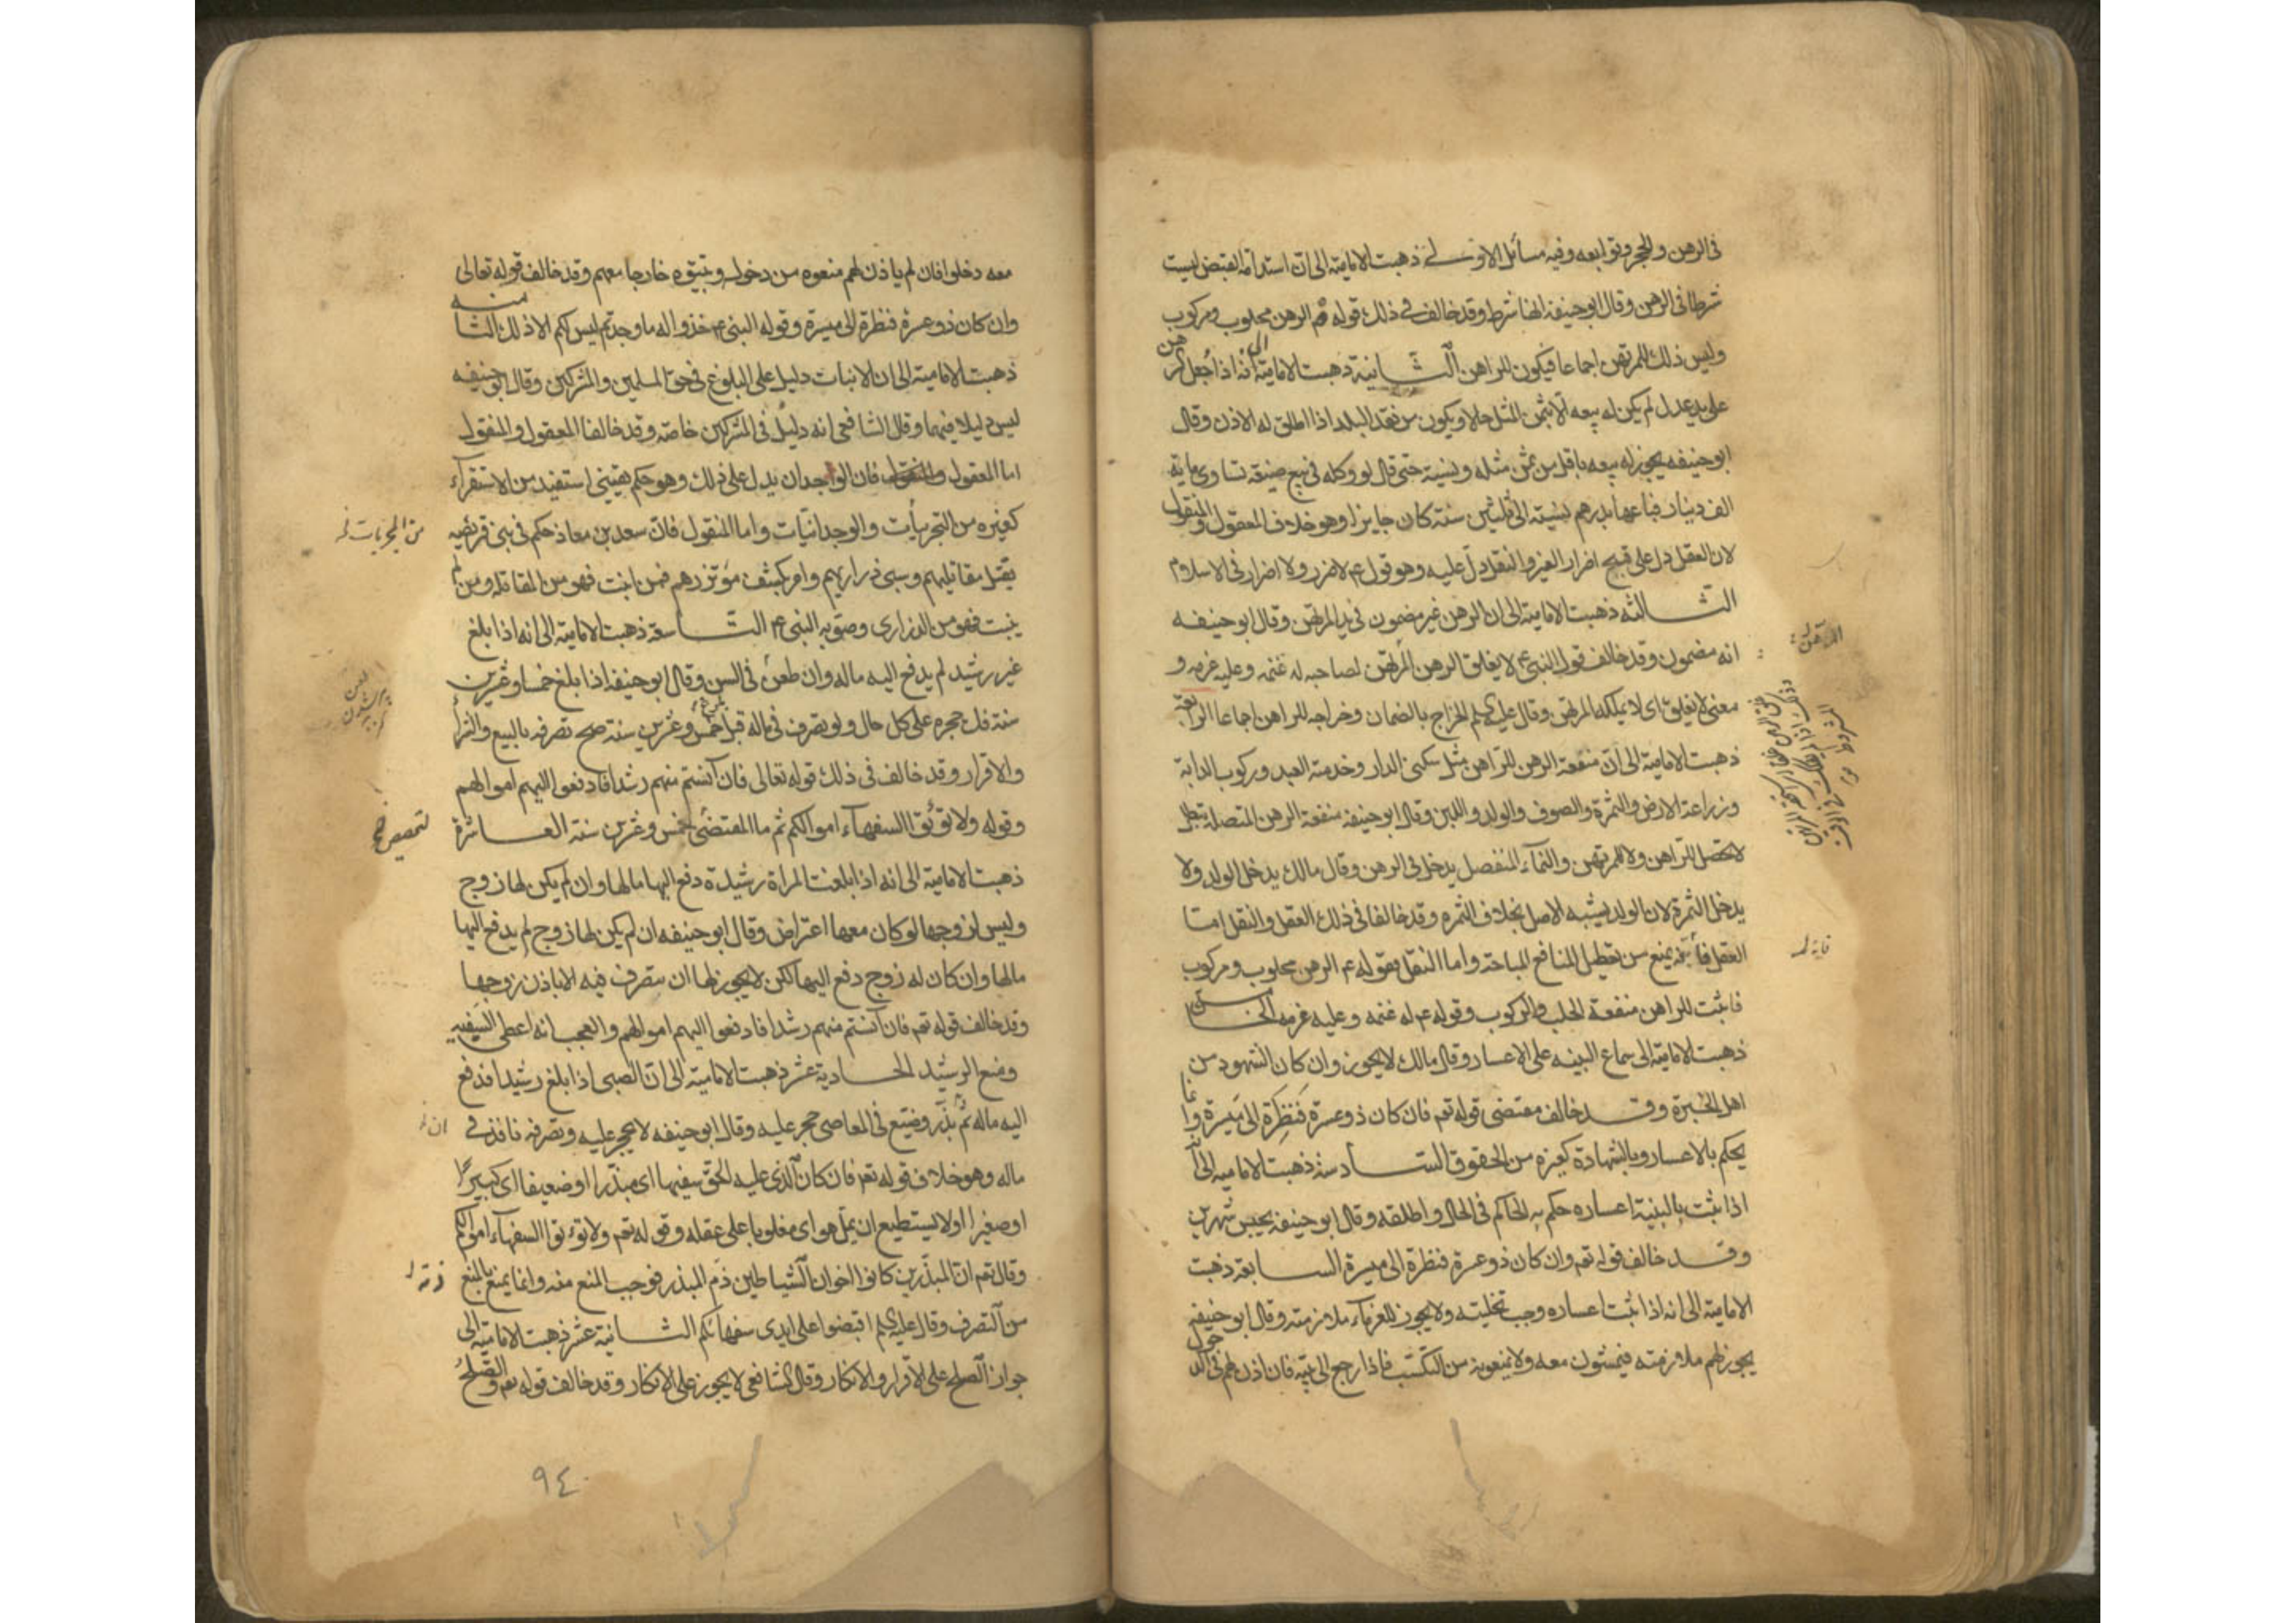 فى الرهن والحجر وتوابعه وفيه مسائل الاولى ذهبت الامامية الى ان استدامة القبض ليست
شرطا فى الرهن وقال ابو حنيفة انها شرط وقد خالف فى ذلك قوله عم الرهن محلوب ومركوب
وليس ذلك للمرتهن اجماعا فيكون للراهن الثانية ذهبت الامامية الى انه اذا جعل الرهن
على يد عدل لم يكن له بيعه الا بثمن المثل حالا ويكون من نقد البلد اذا اطلق له الاذن وقال
ابو حنيفه يجوز له بيعه باقل من ثمن مثله ونسية حتى قال لو وكله فى بيع ضيعة تساوى ماية
الف دينار فباعها بدرهم نسيئة الى ثلثين سنة كان جايزا وهو خلاف المعقول والمنقول
لان العقل دل على قبح اضرار الغير والنقل دل عليه وهو قوله عم لا ضرر ولا اضرار فى الاسلام
الثالثه ذهبت الامامية الى ان الرهن غير مضمون فى يد المرتهن وقال ابو حنيفه
انه مضمون وقد خالف قول النبى عم لا يغلق الرهن المرتهن لصاحبه له غنمه وعليه غرمه و
معنى لا يغلق اى لا يملكه المرتهن وقال عليه السلم الخراج بالضمان وخراجه للراهن اجماعا الرابعة
ذهبت الامامية الى ان منفعة الرهن للراهن مثل سكنى الدار وخدمة العبد وركوب الدابة
وزراعة الارض والثمرة والصوف والولد واللبن وقال ابو حنيفه منفعة الرهن المتصلة تبطل
لا تحصل للراهن ولا للمرتهن والنماء المنفصل يدخل فى الرهن وقال مالك يدخل الولد ولا
يدخل الثمرة لان الولد يشبه الاصل بخلاف الثمره وقد خالفا فى ذلك العقل والنقل اما
العقل فانه يمنع من تعطيل المنافع المباحة واما النقل فقوله عم الرهن محلوب ومركوب
فاثبت للراهن منفعة الحلب والركوب وقوله عم له غنمه وعليه غرمه الخامسة
ذهبت الامامية الى سماع البينه على الاعسار وقال مالك لا يجوز وان كان الشهود من
اهل الخبرة وقد خالف مقتضى قوله تعم فان كان ذو عسرة فنظرة الى ميسرة وانما
يحكم بالاعسار وبالشهادة كغيره من الحقوق السادسة ذهبت الاماميه الى انه
اذا ثبت بالبينة اعساره حكم به الحاكم فى الحال واطلقه وقال ابو حنيفه يحبس شهرين
وقد خالف قوله تعم وان كان ذو عسرة فنظرة الى ميسرة السابعة ذهبت
الامامية الى انه اذا ثبت اعساره وجب تخليته ولا يجوز للغرماء ملازمته وقال ابو حنيفه
يجوز لهم ملازمته فيمشون معه ولا يمنعونه من التكسب فاذا رجع الى بيته فان اذن لهم فى الدخول
فانه
معه دخلوا فان لم ياذن لهم منعوه من دخوله وتبقوه خارجا معهم وقد خالف قوله تعالى
وان كان ذو عسرة فنظرة الى ميسرة وقوله النبى عم خذوا له ما وجدتم ليس لكم الا ذلك الثامنه
ذهبت الامامية الى ان الانبات دليل على البلوغ فى حق المسلمين والمشركين وقال ابو حنيفه
ليس دليلا فيهما وقال الشافعى انه دليل فى المشركين خاصة وقد خالفا المعقول والمنقول
اما المعقول فان الواجدان يدل على ذلك وهو حكم يقينى استفيد من الاستقراء
كغيره من التجربيات والوجدانيات واما المنقول فان سعد بن معاذ حكم فى بنى قريضه
بقتل مقاتليهم وسبى ذراريهم وامر بكشف مؤتزرهم فمن انبت فهو من المقاتله ومن لم
ينبت فهو من الذرارى وصوبه النبى عم التاسعة ذهبت الامامية الى انه اذا بلغ
غير رشيد لم يدفع اليه ماله وان طعن فى السن وقال ابو حنيفه اذا بلغ خمسا وعشرين
سنة فك حجره على كل حال ولو تصرف فى ماله قبل خمس وعشرين سنة صح تصرفه بالبيع والشراء
والاقرار وقد خالف فى ذلك قوله تعالى فان آنستم منهم رشدا فادفعوا اليهم اموالهم
وقوله ولا تؤتوا السفهاء اموالكم ثم ما المقتضى خمس وعشرين سنة العاشرة
ذهبت الامامية الى انه اذا بلغت المراة رشيدة دفع اليها مالها وان لم يكن لها زوج
وليس لزوجها لو كان معها اعتراض وقال ابو حنيفه ان لم يكن لها زوج لم يدفع اليها
مالها وان كان له زوج دفع اليها لكن لا يجوز لها ان تتصرف فيه الا باذن زوجها
وقد خالف قوله تعم فان آنستم منهم رشدا فادفعوا اليهم اموالهم والعجب انه اعطى السفيه
ومنع الرشيد الحادية عشر ذهبت الامامية الى ان الصبى اذا بلغ رشيدا فدفع
اليه ماله ثم بذر وضيع فى المعاصى حجر عليه وقال ابو حنيفه لا يحجر عليه وتصرفه نافذ فى
ماله وهو خلاف قوله تعم فان كان الذى عليه الحق سفيها اى مبذرا او ضعيفا اى كبيرا
او صغيرا او لا يستطيع ان يمل هو اى مغلوبا على عقله وقوله تعم ولا تؤتوا السفهاء اموالكم
وقال تعم ان المبذرين كانوا اخوان الشياطين ذم المبذر فوجب المنع منه وانما يمنع بالمنع
من التصرف وقال عليه السلم اقبضوا على ايدى سفهائكم الثانية عشر ذهبت الامامية الى
جواز الصلح على الاقرار والانكار وقال الشافعى لا يجوز على الانكار وقد خالف قوله تعم والصلح
من المجربات
لتخصيص
٩٤